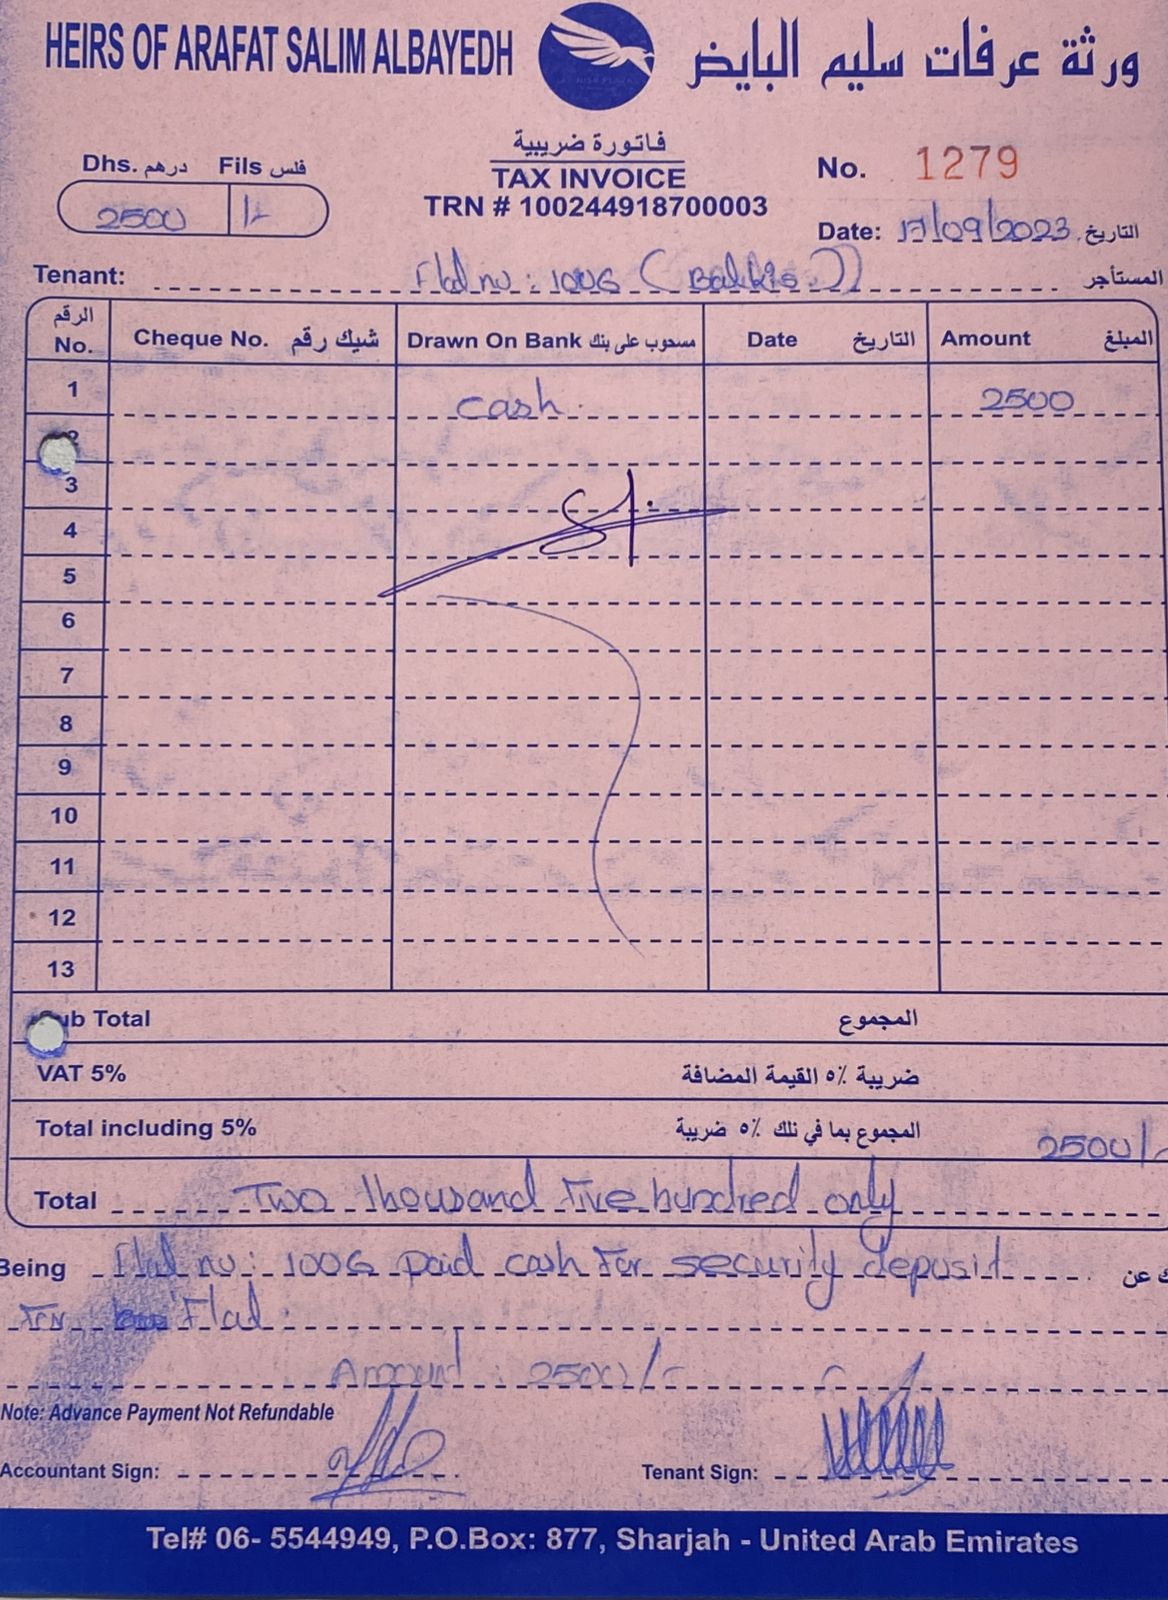 HEIRS OF ARAFAT SALIM ALBAYEDH ورثة عرفات سليم البايض
فاتورة ضريبية
TAX INVOICE
TRN # 100244918700003
Dhs. درهم Fils فلس
2500 /-
No. 1279
Date: 17/09/2023 التاريخ
Tenant: Flat no: 1006 (Balkis) المستأجر
الرقم No. Cheque No. شيك رقم Drawn On Bank مسحوب على بنك Date التاريخ Amount المبلغ
1 cash 2500
2
3
4
5
6
7
8
9
10
11
12
13
Sub Total المجموع
VAT 5% ضريبة ٥٪ القيمة المضافة
Total including 5% المجموع بما في ذلك ٥٪ ضريبة 2500/-
Total Two thousand Five hundred only
Being Flat no: 1006 paid cash For security deposit عن
For Flat.
Amount: 2500/-
Note: Advance Payment Not Refundable
Accountant Sign: Tenant Sign:
Tel# 06- 5544949, P.O.Box: 877, Sharjah - United Arab Emirates